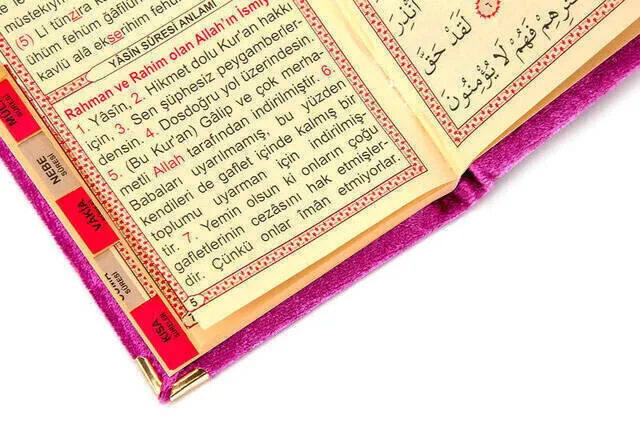 (5) Li tünzira
ühüm fehüm ğâfilûn
kavlü alâ ekserihim fehüm
YÂSÎN SÛRESİ ANLAMI
Rahman ve Rahim olan Allah'ın İsmiy
1. Yâsîn, 2. Hikmet dolu Kur'an hakkı
için, 3. Sen şüphesiz peygamberler-
densin. 4. Dosdoğru yol üzerindesin.
5. (Bu Kur'an) Gâlip ve çok merha-
metli Allah tarafından indirilmiştir. 6.
Babaları uyarılmamış, bu yüzden
kendileri de gaflet içinde kalmış bir
toplumu uyarman için indirilmiş-
tir. 7. Yemin olsun ki onların çoğu
gafletlerinin cezâsını hak etmişler-
dir. Çünkü onlar îmân etmiyorlar.
5
لَقَدْ حَقَّ
فَهُمْ لَا يُؤْمِنُونَ
٦
MÜLK
SÛRESİ
NEBE
SÛRESİ
VAKIA
SÛRESİ
KISA
SÛRELER